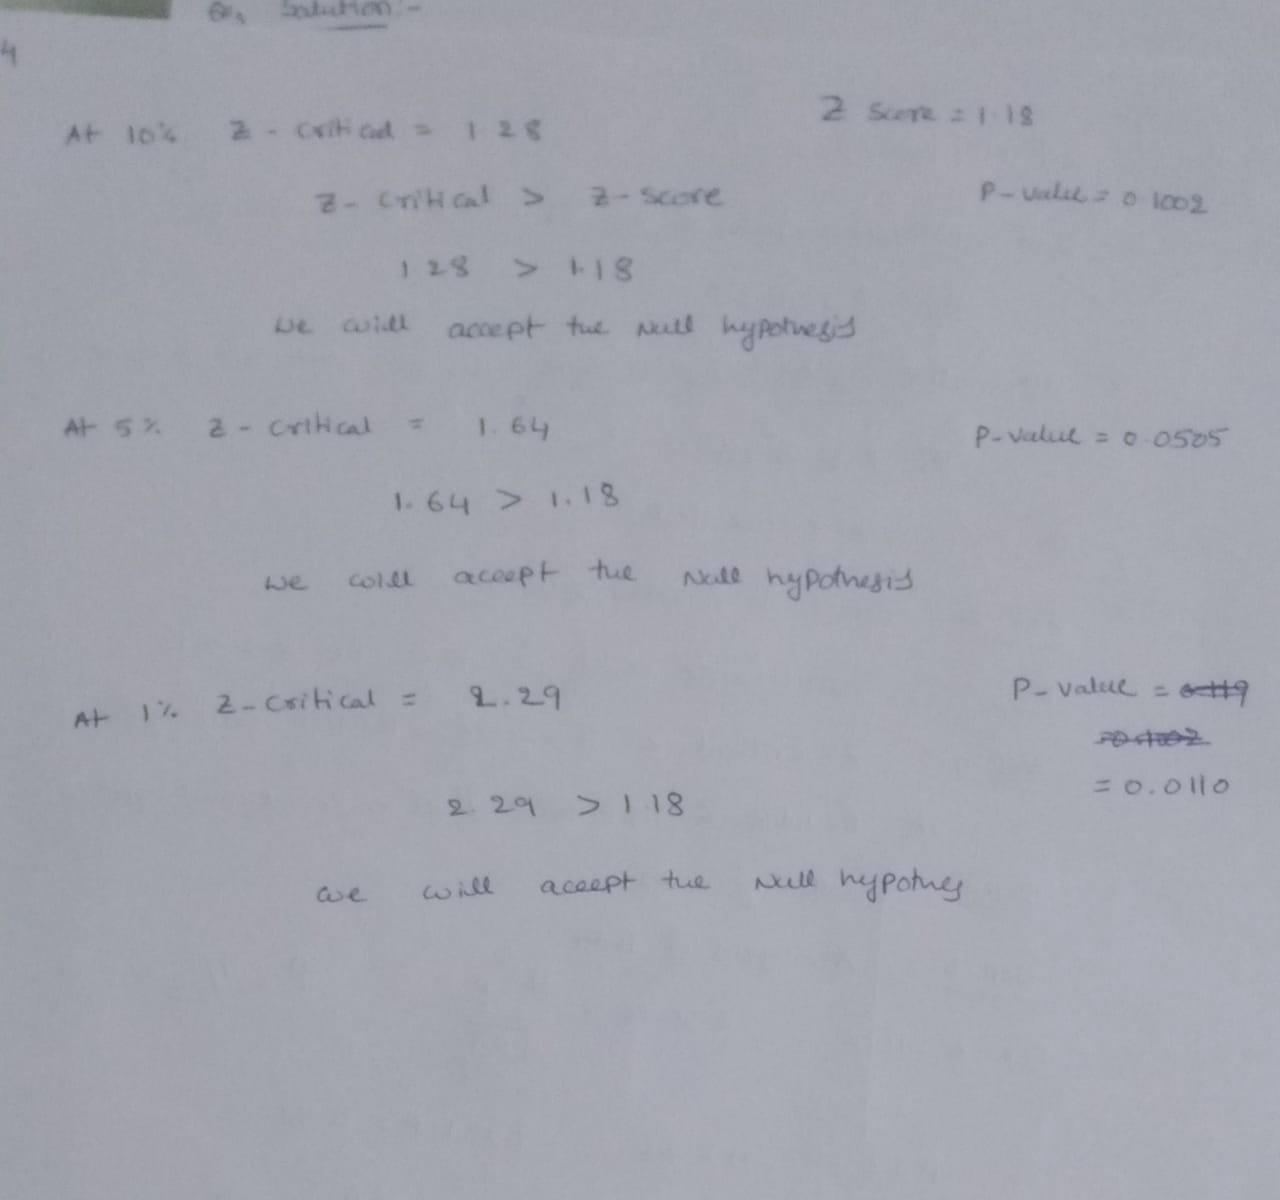 Solution:-
4
Z Score = 1.18
At 10% Z - Critical = 1.28
Z - Critical > Z - Score
P - value = 0.1002
1.28 > 1.18
We will accept the Null hypothesis
At 5% Z - Critical = 1.64
P - value = 0.0505
1.64 > 1.18
We will accept the Null hypothesis
At 1% Z - Critical = 2.29
P - value =
= 0.0110
2.29 > 1.18
we will accept the Null hypothes